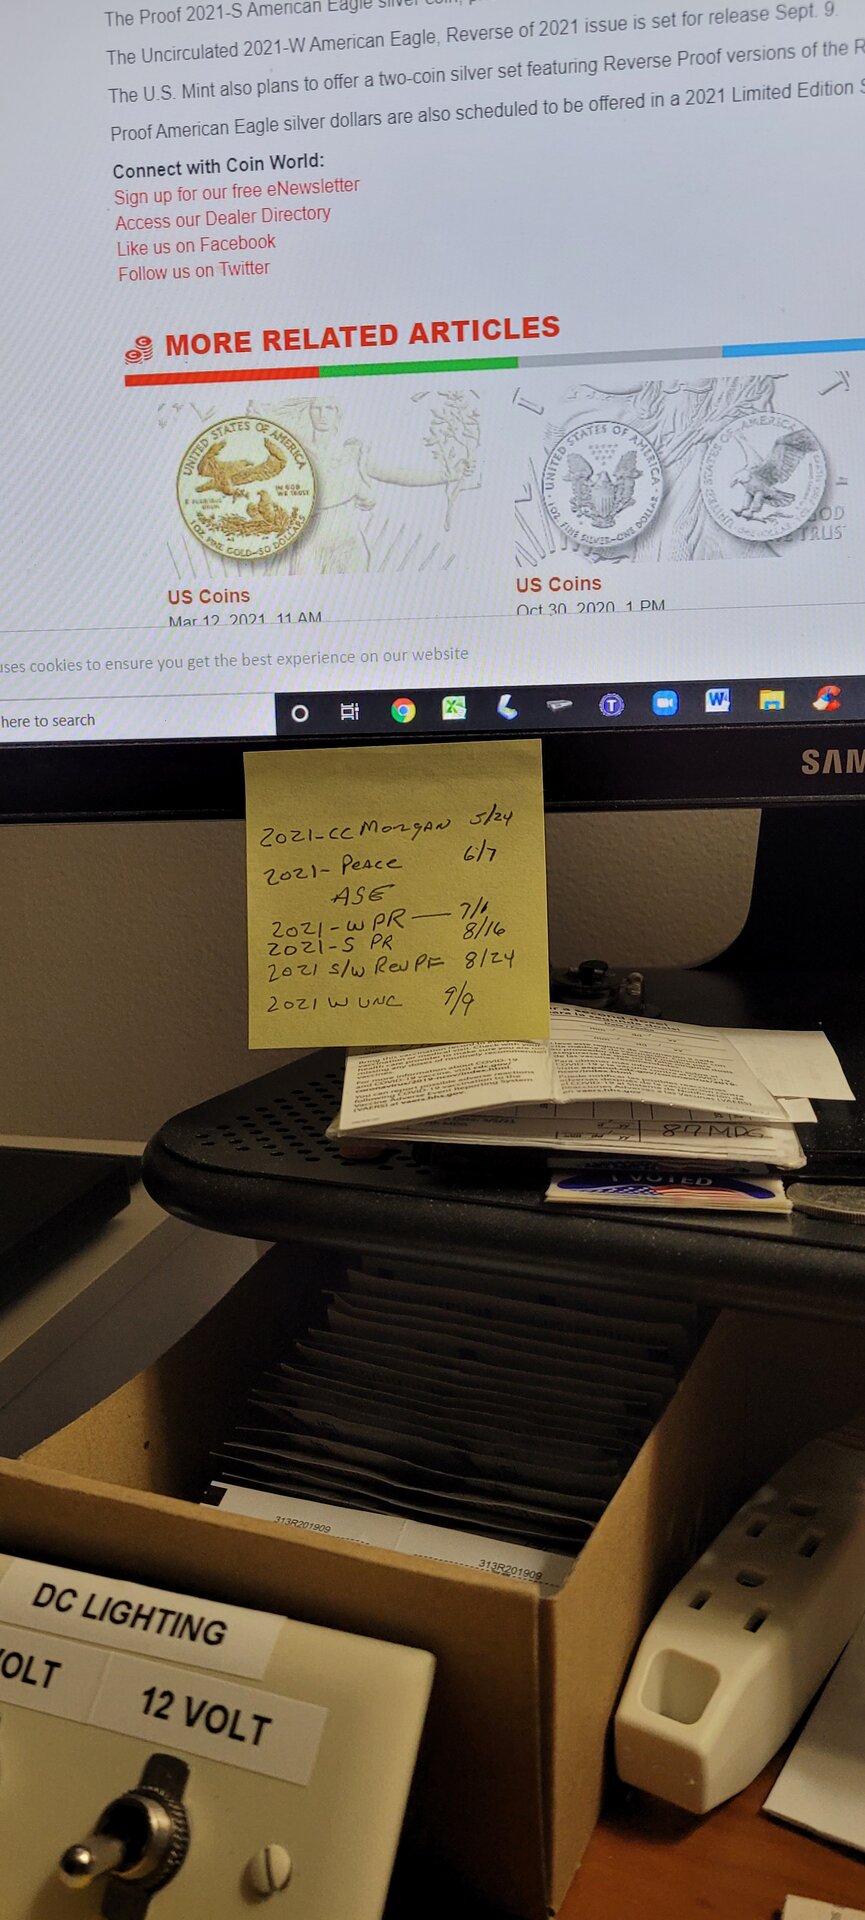 The Proof 2021-S American Eagle silver
The Uncirculated 2021-W American Eagle, Reverse of 2021 issue is set for release Sept. 9.
The U.S. Mint also plans to offer a two-coin silver set featuring Reverse Proof versions of the R
Proof American Eagle silver dollars are also scheduled to be offered in a 2021 Limited Edition S
Connect with Coin World:
Sign up for our free eNewsletter
Access our Dealer Directory
Like us on Facebook
Follow us on Twitter
MORE RELATED ARTICLES
UNITED STATES OF AMERICA
IN GOD
WE TRUST
E PLURIBUS
UNUM
1 OZ. FINE GOLD–50 DOLLARS
UNITED STATES OF AMERICA
1 OZ. FINE SILVER–ONE DOLLAR
US Coins
Mar 12, 2021, 11 AM
US Coins
Oct 30, 2020, 1 PM
uses cookies to ensure you get the best experience on our website
here to search
SAM
2021-CC Morgan 5/24
2021- Peace 6/7
ASE
2021-W PR — 7/1
2021-S PR 8/16
2021 S/W Rev PF 8/24
2021 W UNC 9/9
87MDG
I VOTED
313R201909
313R201909
DC LIGHTING
VOLT
12 VOLT